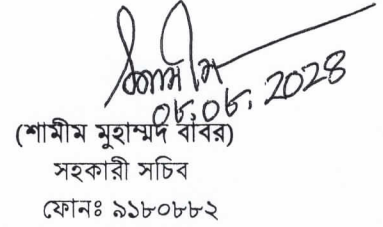 ০৮.০৮.২০২৪
(শামীম মুহাম্মদ বাবর)
সহকারী সচিব
ফোনঃ ৯১৮০৮৮২